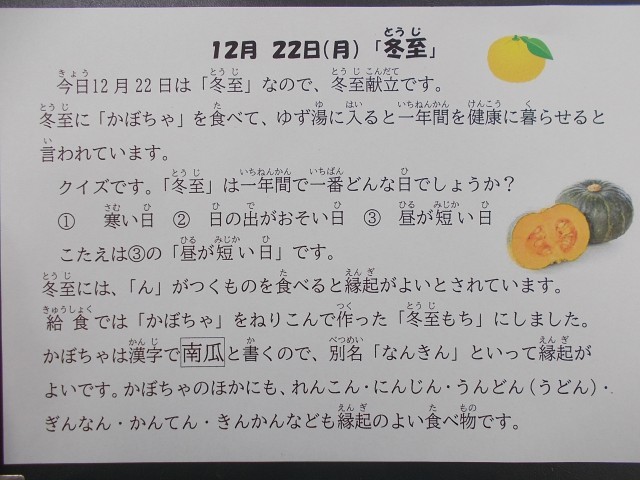 12月 22日(月)「冬至」
今日12月22日は「冬至」なので、冬至献立です。
冬至に「かぼちゃ」を食べて、ゆず湯に入ると一年間を健康に暮らせると
言われています。
クイズです。「冬至」は一年間で一番どんな日でしょうか?
① 寒い日 ② 日の出がおそい日 ③ 昼が短い日
こたえは③の「昼が短い日」です。
冬至には、「ん」がつくものを食べると縁起がよいとされています。
給食では「かぼちゃ」をねりこんで作った「冬至もち」にしました。
かぼちゃは漢字で南瓜と書くので、別名「なんきん」といって縁起が
よいです。かぼちゃのほかにも、れんこん・にんじん・うんどん(うどん)・
ぎんなん・かんてん・きんかんなども縁起のよい食べ物です。